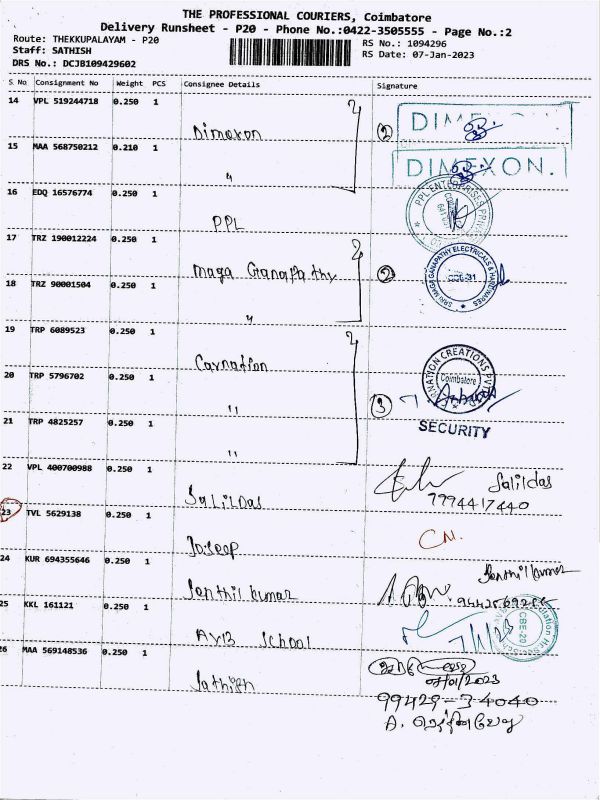 THE PROFESSIONAL COURIERS, Coimbatore
Delivery Runsheet - P20 - Phone No.:0422-3505555 - Page No.:2
Route: THEKKUPALAYAM - P20
Staff: SATHISH
DRS No.: DCJB109429602
RS No.: 1094296
RS Date: 07-Jan-2023
S. No Consignment No Weight PCS Consignee Details Signature
14 VPL 519244718 0.250 1 Dimexon 2 DIMEXON
15 MAA 568750212 0.210 1 " DIMEXON.
16 EDQ 16576774 0.250 1 PPL PPL ENTERPRISES
17 TRZ 190012224 0.250 1 Maga Ganapathy 2 SRI MAGA GANAPATHY ELECTRICALS & HARDWARES
18 TRZ 90001504 0.250 1 "
19 TRP 6089523 0.250 1 Carnation CARNATION CREATIONS PVT Coimbatore
20 TRP 5796702 0.250 1 " 3
SECURITY
21 TRP 4825257 0.250 1 "
22 VPL 400700988 0.250 1 Salildas Salildas
7994417440
23 TVL 5629138 0.250 1 Joseep CN.
24 KUR 694355646 0.250 1 Senthil kumar Senthil kumar
25 KKL 161121 0.250 1 AVB School 7/1/23 CBE-20
26 MAA 569148536 0.250 1 Sathish
99429-34040